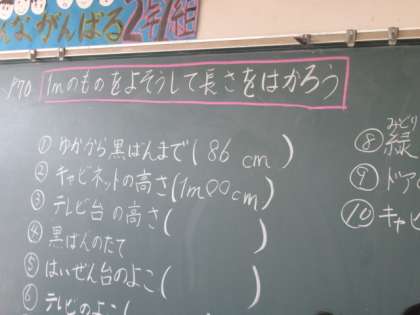 んながんばる2年1組
P70 1mのものをよそうして長さをはかろう
① ゆかから黒ばんまで(86cm)
② キャビネットの高さ(1m00cm)
③ テレビ台の高さ(
④ 黒ばんのたて )
⑤ はいぜん台のよこ( )
⑥ テレビのよこ(
みどり
⑧ 緑
⑨ ドア
⑩ キャビ